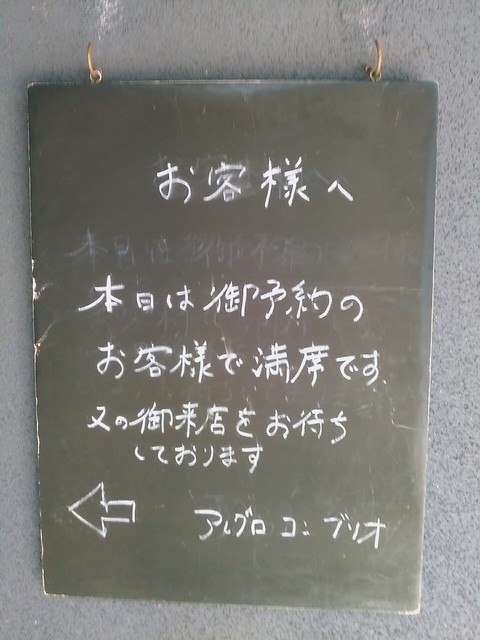 お客様へ
本日は御予約の
お客様で満席です
又の御来店をお待ち
しております
アレグロ コン ブリオ